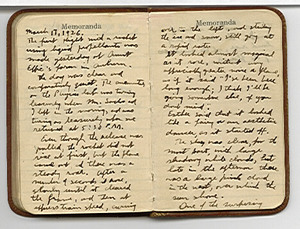 Memoranda
March 17, 1926.
The first flight with a rocket
using liquid propellants was
made yesterday at Aunt
Effie's farm in Auburn.
The day was clear and
comparatively quiet. The
on the Physics lab was turning
leisurely when Mr. Sachs and
I left in the morning, and was
turning as leisurely when we
returned at 5:30 P.M.
Even though the release was
pulled, the rocket did not
rise at first, but the flame
came out, and there was a
steady roar. After a
number of seconds it rose,
slowly until it cleared
the frame, and then at
express train speed, curving
Memoranda
over to the left, and striking
the ice and snow, still going at
a rapid rate.
It looked almost magical
as it rose, without any
appreciably greater noise or flame, as
if it said "I've been here
long enough; I think I'll be
going somewhere else, if you
don't mind."
Esther said that it looked
like a fairy or an aesthetic
dancer, as it started off.
The sky was clear, for the
most part, with large
shadowy white clouds, but
late in the afternoon there
was a large pink cloud
in the west, over which the
sun shone.
One of the surprising